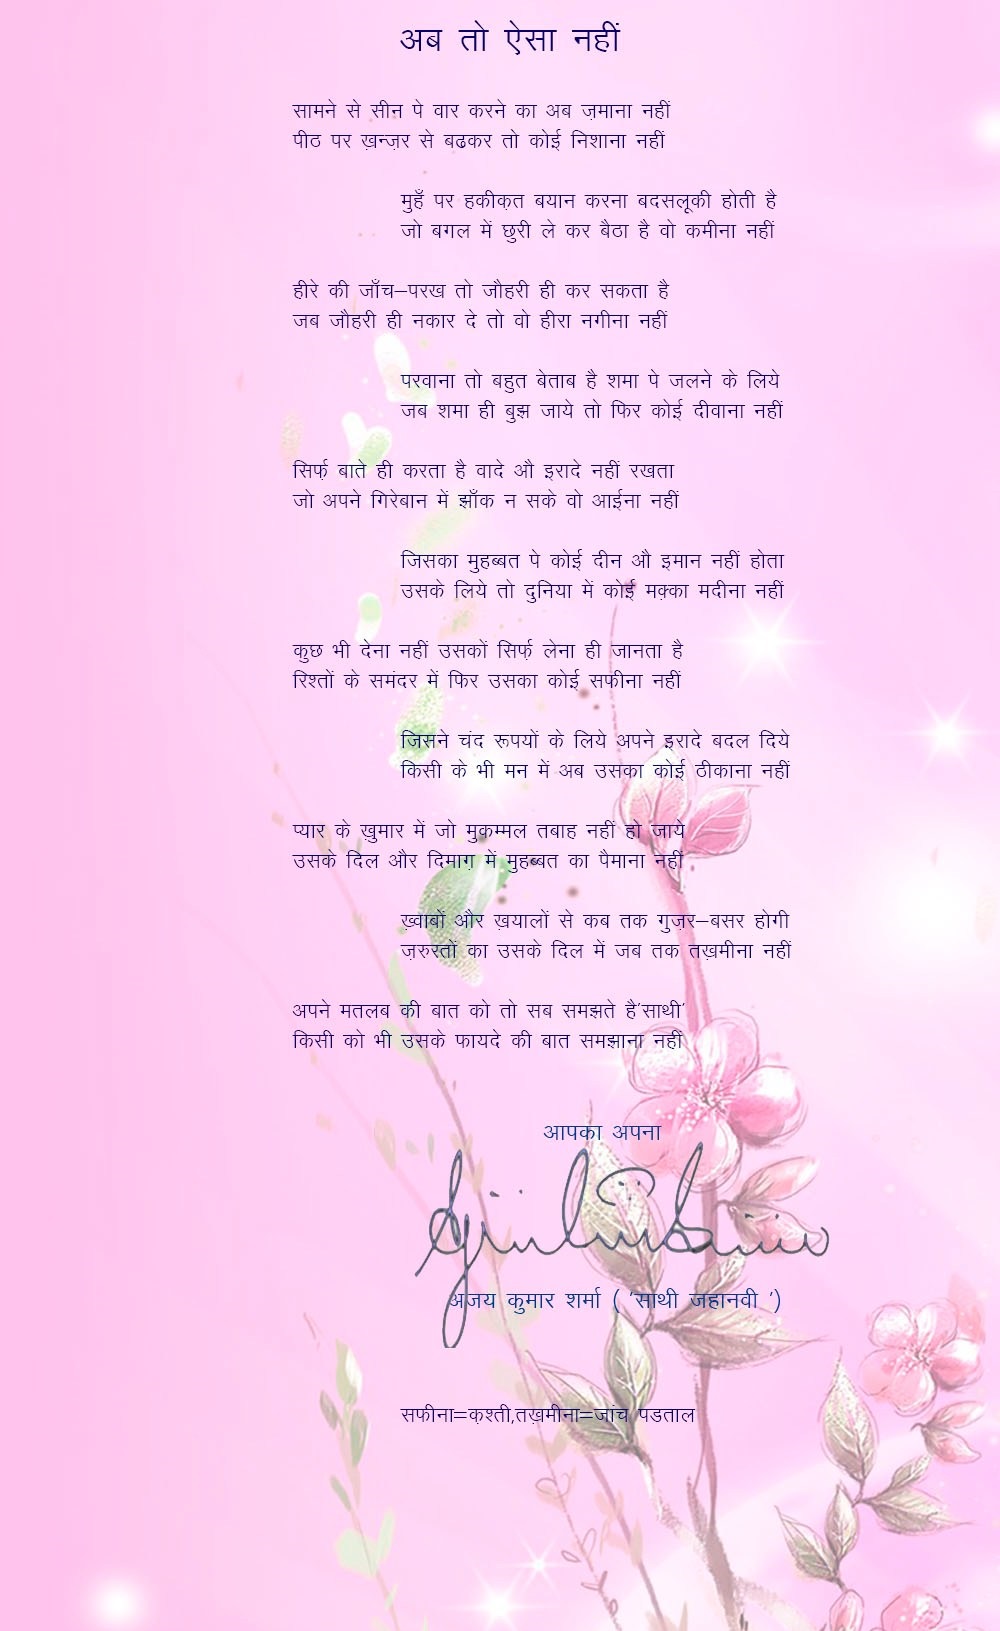 अब तो ऐसा नहीं
सामने से सीन पे वार करने का अब ज़माना नहीं
पीठ पर ख़न्ज़र से बढकर तो कोई निशाना नहीं
मुहँ पर हकीक़त बयान करना बदसलूकी होती है
जो बगल में छुरी ले कर बैठा है वो कमीना नहीं
हीरे की जाँच–परख तो जौहरी ही कर सकता है
जब जौहरी ही नकार दे तो वो हीरा नगीना नहीं
परवाना तो बहुत बेताब है शमा पे जलने के लिये
जब शमा ही बुझ जाये तो फिर कोई दीवाना नहीं
सिर्फ़ बाते ही करता है वादे औ इरादे नहीं रखता
जो अपने गिरेबान में झाँक न सके वो आईना नहीं
जिसका मुहब्बत पे कोई दीन औ इमान नहीं होता
उसके लिये तो दुनिया में कोई मक़्का मदीना नहीं
कुछ भी देना नहीं उसकों सिर्फ़ लेना ही जानता है
रिश्तों के समंदर में फिर उसका कोई सफीना नहीं
जिसने चंद रूपयों के लिये अपने इरादे बदल दिये
किसी के भी मन में अब उसका कोई ठीकाना नहीं
प्यार के ख़ुमार में जो मुक़म्मल तबाह नहीं हो जाये
उसके दिल और दिमाग़ में मुहब्बत का पैमाना नहीं
ख़्वाबों और ख़यालों से कब तक गुज़र–बसर होगी
ज़रुरतों का उसके दिल में जब तक तख़मीना नहीं
अपने मतलब की बात को तो सब समझते है'साथी'
किसी को भी उसके फायदे की बात समझाना नहीं
आपका अपना
अजय कुमार शर्मा ( 'साथी जहानवी ')
सफीना=क़श्ती,तख़मीना=जांच पडताल